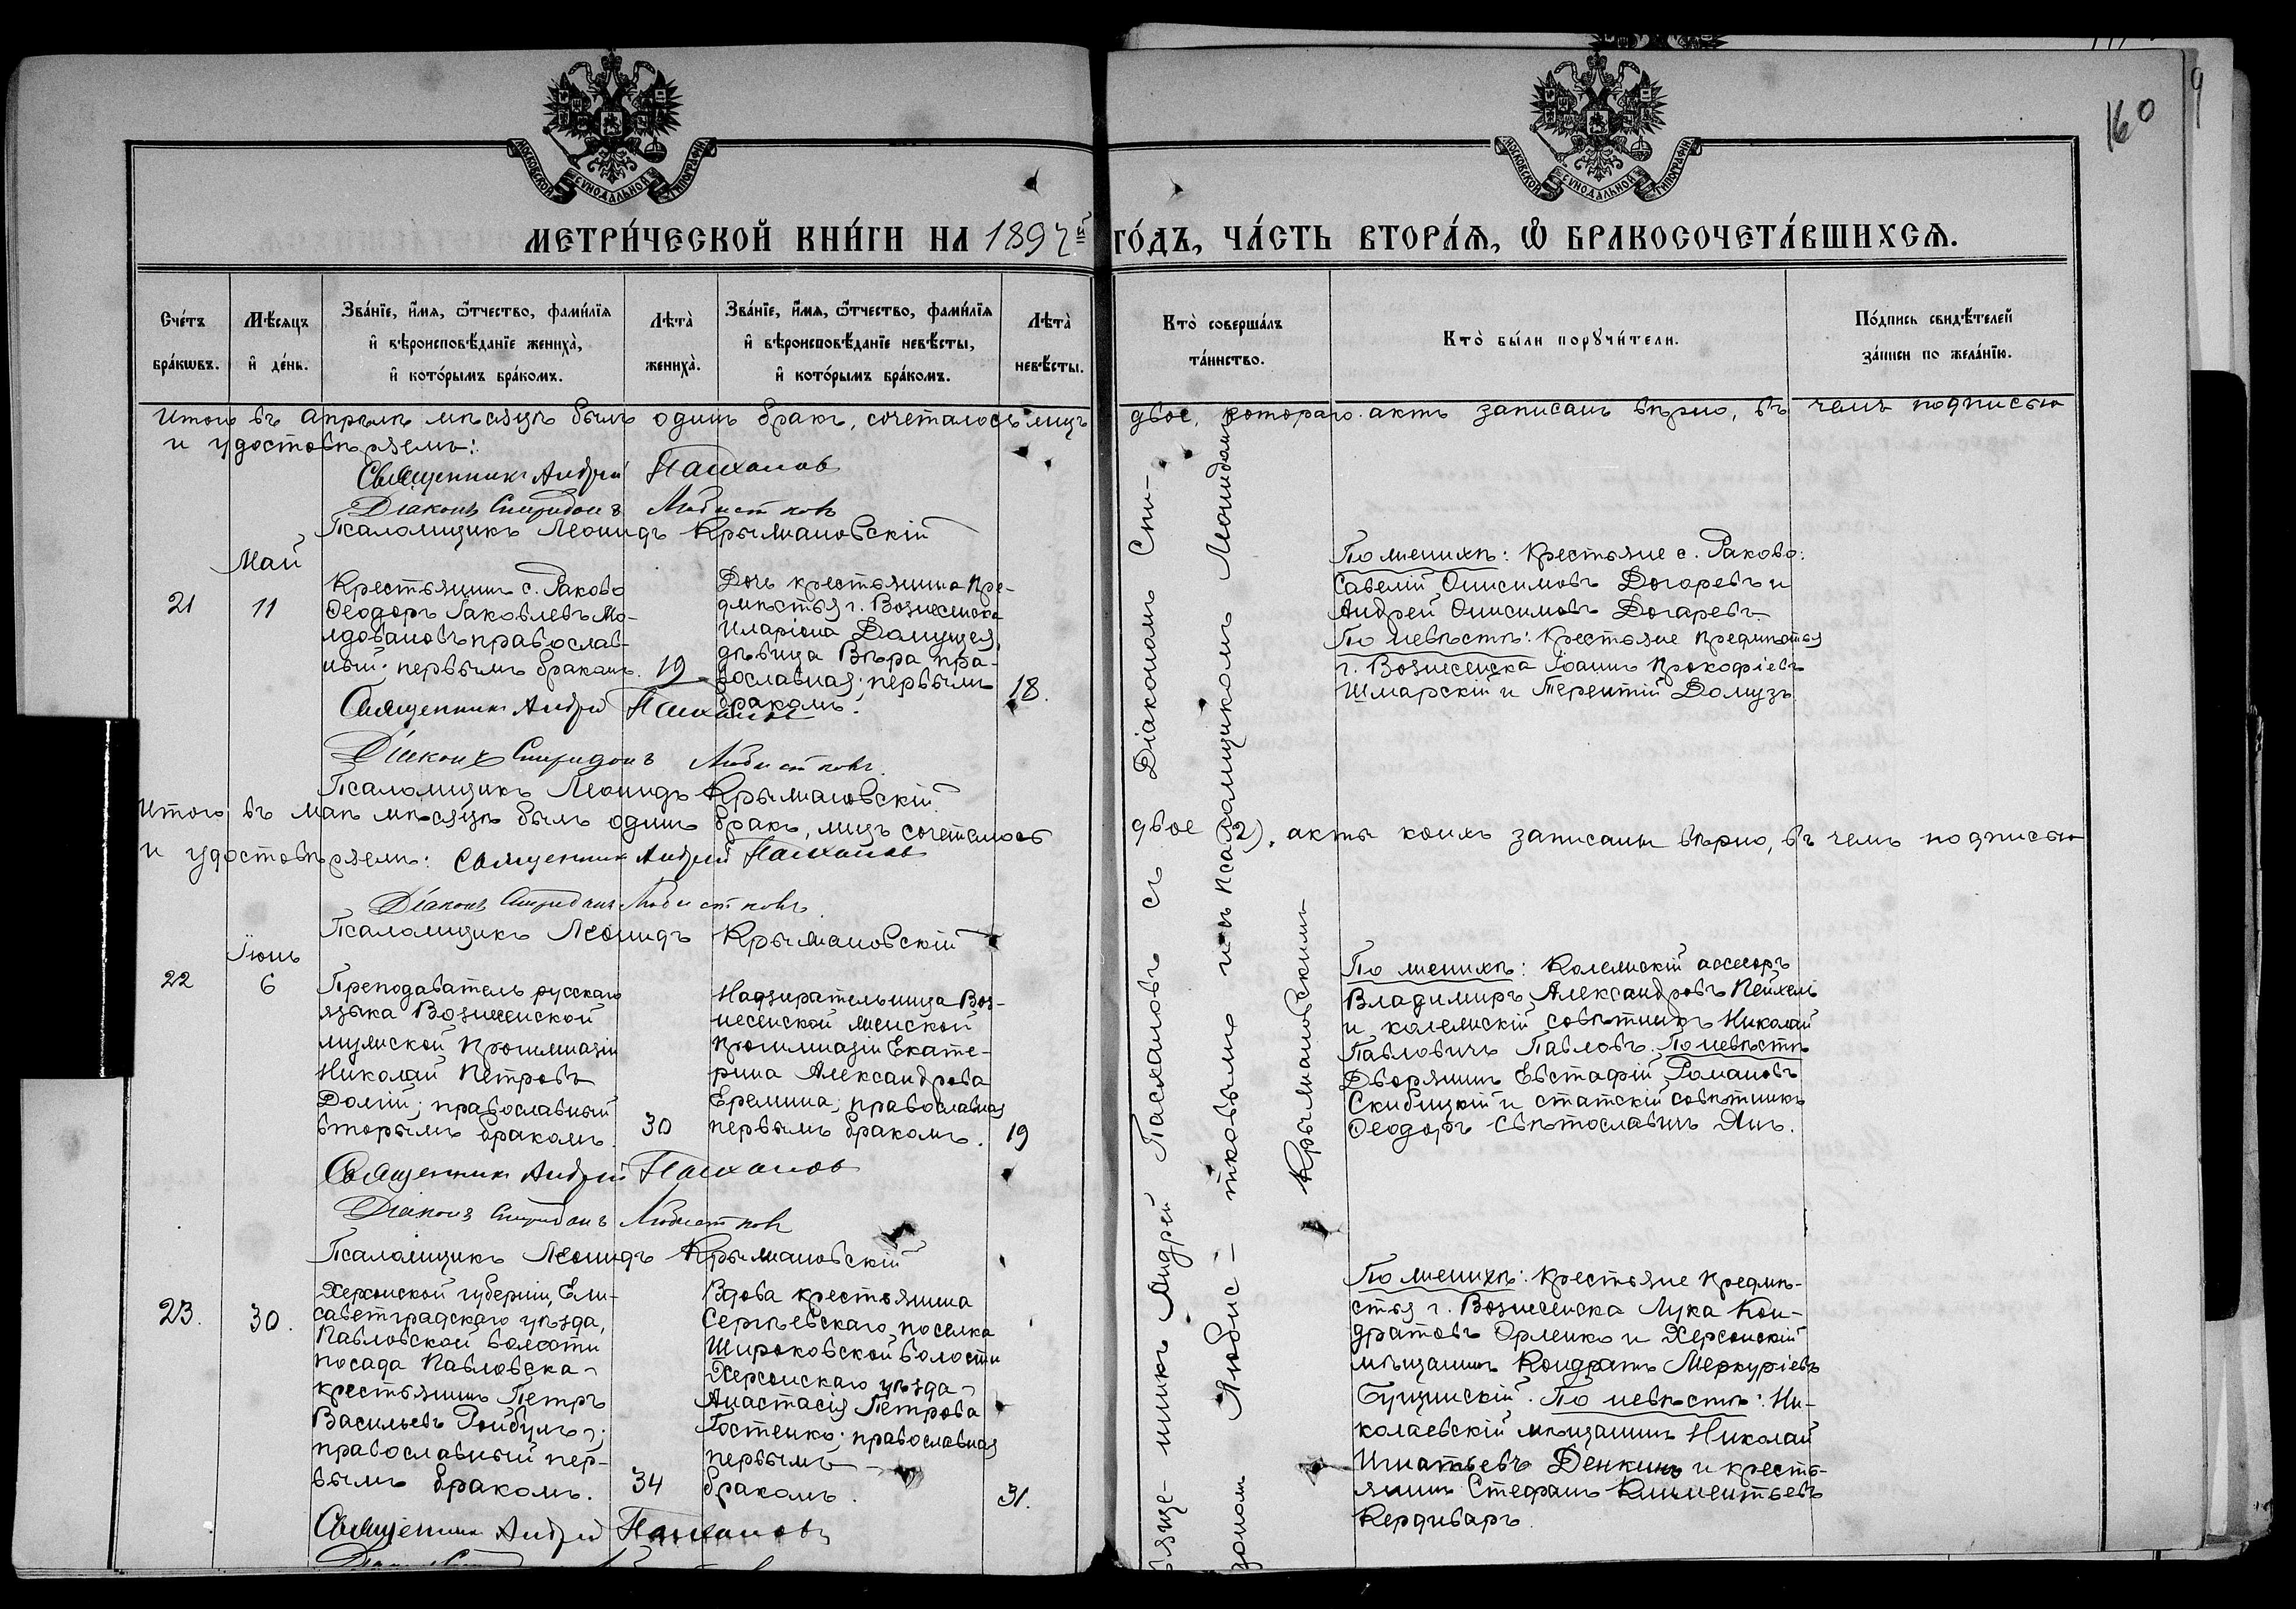 160
МОСКОВСКОЙ СѴНОДАЛЬНОЙ ТИПОГРАФІИ
МОСКОВСКОЙ СѴНОДАЛЬНОЙ ТИПОГРАФІИ
МЕТРИ́ЧЕСКОЙ КНИ́ГИ НА 1892й ГО́ДЪ, ЧА́СТЬ ВТОРА́Я, Ѽ БРАКОСОЧЕТА́ВШИХСЯ.
Сче́тъ бра́кѡвъ.
Мѣ́сяцъ и҆ де́нь.
Зва́нїе, и҆́мя, ѻ҆́тчество, фами́лїя и҆ вѣроисповѣ́данїе жениха̀, и҆ кото́рымъ бра́комъ.
Лѣта̀ жениха̀.
Зва́нїе, и҆́мя, ѻ҆́тчество, фами́лїя и҆ вѣроисповѣ́данїе невѣ́сты, и҆ кото́рымъ бра́комъ.
Лѣта̀ невѣ́сты.
Кто̀ соверша́лъ та́инство.
Кто̀ бы́ли порꙋчи́тели.
По́дпись свидѣ́телей за́писи по жела́нїю.
Итого въ Апрѣлѣ мѣсяцѣ былъ одинъ бракъ, сочеталось лицъ двое, котораго актъ записанъ вѣрно, въ чемъ подписью
и удостовѣряемъ:
Священникъ Андрей Пасхаловъ
Діаконъ Спиридонъ Любистковъ
Псаломщикъ Леонидъ Крыжановскій
Май
21
11
Крестьянинъ с. Раково
Ѳеодоръ Іаковлевъ Мо-
лдовановъ православ-
ный; первымъ бракомъ.
19
Дочь крестьянина пре-
дмѣстья г. Вознесенска
Иларіона Домущея,
дѣвица Вѣра, пра-
вославная; первымъ
бракомъ.
18.
По женихѣ: Крестьяне с. Раково:
Савелій Онисимовъ Догаревъ и
Андрей Онисимовъ Догаревъ.
По невѣстѣ: Крестьяне предмѣстья
г. Вознесенска Іоаннъ Прокофіевъ
Шмарскій и Терентій Домузъ.
Священникъ Андрей Пасхаловъ
Діаконъ Спиридонъ Любистковъ.
Псаломщикъ Леонидъ Крыжановскій.
Итого въ маѣ мѣсяцѣ былъ одинъ бракъ, лицъ сочеталось двое (2). акты коихъ записаны вѣрно, въ чемъ подписью
и удостовѣряемъ: Священникъ Андрей Пасхаловъ
Діаконъ Спиридонъ Любистковъ.
Псаломщикъ Леонидъ Крыжановскій
Іюнь
22
6
Преподаватель русскаго
языка Вознесенской
мужской прогимназіи
Николай Петровъ
Долгій; православный
вторымъ бракомъ.
30
Надзирательница Воз-
несенской женской
прогимназіи Екате-
рина Александрова
Еремина; православная
первымъ бракомъ.
19
По женихѣ: Колежскій ассесоръ
Владимиръ Александровъ Пейхель
и колежскій совѣтникъ Николай
Павловичъ Павловъ. По невѣстѣ
Дворянинъ Евстафій Романовъ
Скибицкій и статскій совѣтникъ
Ѳеодоръ Свѣтославичъ Янъ.
Священникъ Андрей Пасхаловъ
Діаконъ Спиридонъ Любистковъ
Псаломщикъ Леонидъ Крыжановскій
23.
30.
Херсонской губерніи, Ели-
саветградскаго уѣзда,
Павловской волости
посада Павловска
крестьянинъ Петръ
Васильевъ Ройбулъ;
православный пер-
вымъ бракомъ.
34
Вдова крестьянина
Сергѣевскаго поселка
Широковской волости
Херсонскаго уѣзда
Анастасія Петрова
Гостенко; православная
первымъ
бракомъ.
31.
По женихѣ: Крестьяне предмѣ-
стья г. Вознесенска Лука Кон-
дратовъ Орленко и Херсонскій
мѣщанинъ Кондратъ Меркуріевъ
Бущинскій. По невѣстѣ: Ни-
колаевскій мѣщанинъ Николай
Игнатьевъ Денкинъ и кресть-
янинъ Стефанъ Климентьевъ
Кердиваръ.
Священникъ Андрей Пасхаловъ
Священникъ Андрей Пасхаловъ съ Діакономъ Спи-
Любистковымъ и съ псаломщикомъ Леонидомъ
Крыжановскимъ